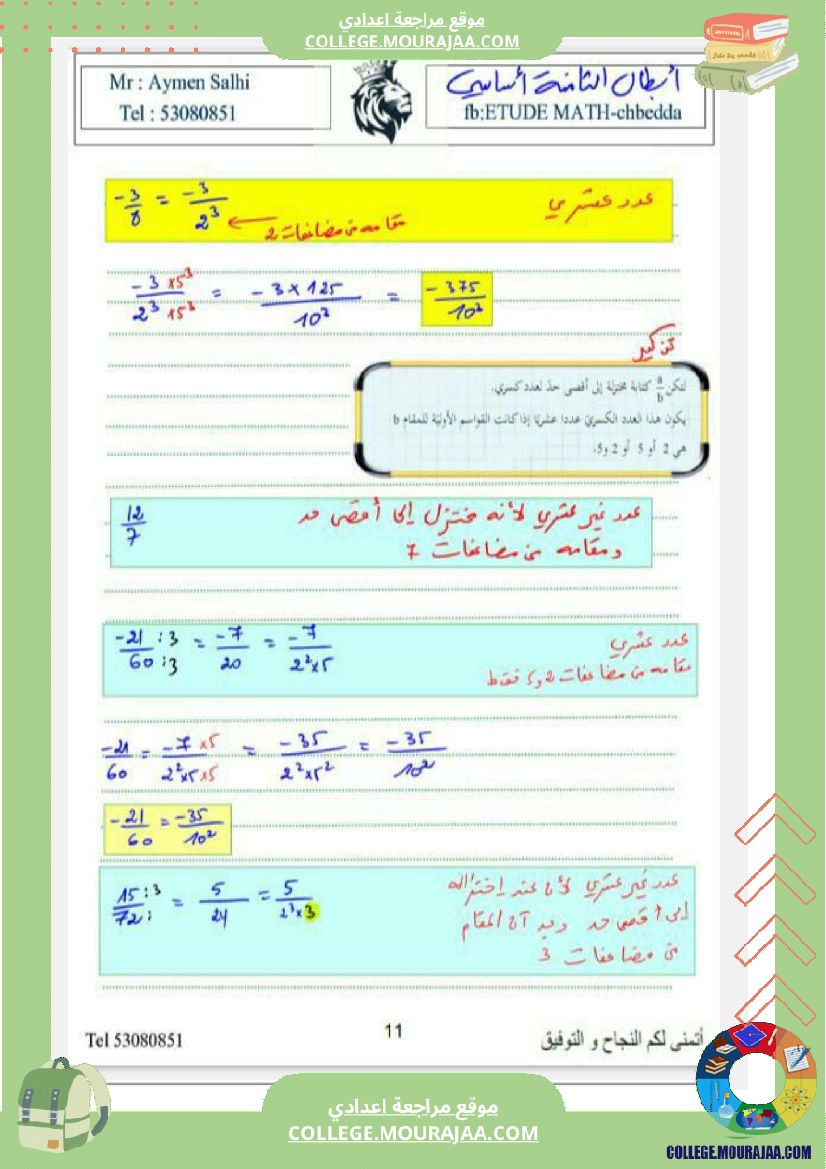 موقع مراجعة اعدادي
COLLEGE.MOURAJAA.COM
Mr : Aymen Salhi
Tel : 53080851
أبطال الثامنة أساسي
fb:ETUDE MATH-chbedda
-3/8 = -3/2³
عدد عشري
مقامه من مضاعفات 2
-3×5³/2³×5³ = -3×125/10³ = -375/10³
تذكير
لتكن a/b كتابة مختزلة إلى أقصى حدّ لعدد كسري.
يكون هذا العدد الكسريّ عددا عشريّا إذا كانت القواسم الأوليّة للمقام b
هي 2 أو 5 أو 2 و5.
12/7
عدد غير عشري لأنه مختزل إلى أقصى حد
ومقامه من مضاعفات 7
-21:3/60:3 = -7/20 = -7/2²×5
عدد عشري
مقامه من مضاعفات 2 و5 فقط
-21/60 = -7×5/2²×5×5 = -35/2²×5² = -35/10²
-21/60 = -35/10²
15:3/72: = 5/24 = 5/2³×3
عدد غير عشري لأن عند إختزاله
إلى أقصى حد نجد أن المقام
من مضاعفات 3
Tel 53080851
11
أتمنى لكم النجاح و التوفيق
موقع مراجعة اعدادي
COLLEGE.MOURAJAA.COM
COLLEGE.MOURAJAA.COM